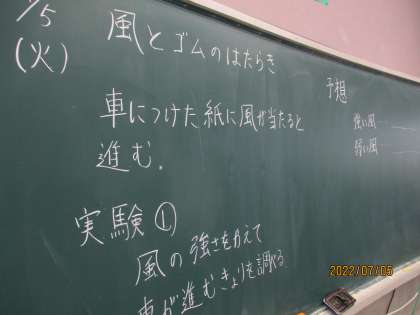 7/5
(火)
風とゴムのはたらき
車につけた紙に風が当たると
進む.
実験①
風の強さをかえて
車が進むきょりを調べる
予想
強い風
弱い風
2022/07/05